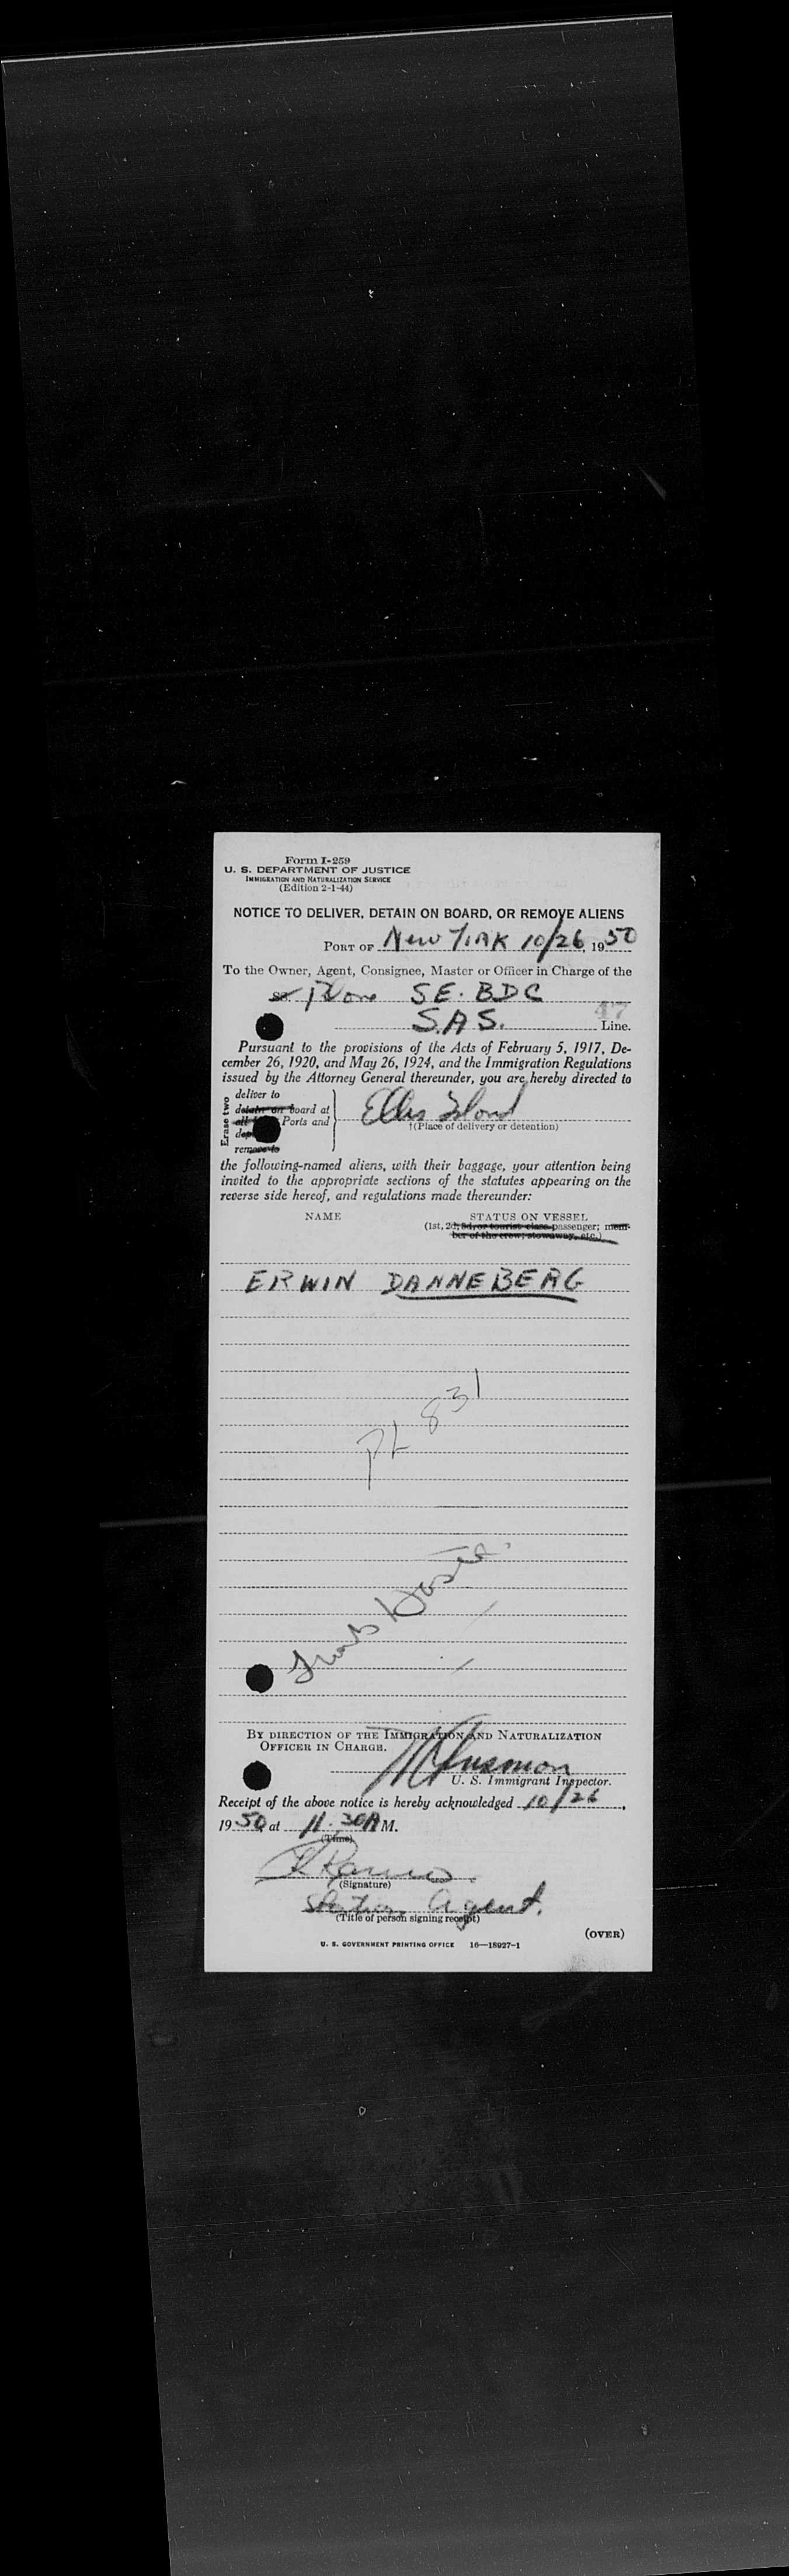 Form I-259
U. S. DEPARTMENT OF JUSTICE
IMMIGRATION AND NATURALIZATION SERVICE
(Edition 2-1-44)
NOTICE TO DELIVER, DETAIN ON BOARD, OR REMOVE ALIENS
PORT OF New York 10/26, 1950
To the Owner, Agent, Consignee, Master or Officer in Charge of the
Plane SE. BDC
47
S.A.S. Line.
Pursuant to the provisions of the Acts of February 5, 1917, De-
cember 26, 1920, and May 26, 1924, and the Immigration Regulations
issued by the Attorney General thereunder, you are hereby directed to
Erase two
deliver to
detain on board at
Ports and
remove to
Ellis Island
†(Place of delivery or detention)
the following-named aliens, with their baggage, your attention being
invited to the appropriate sections of the statutes appearing on the
reverse side hereof, and regulations made thereunder:
NAME STATUS ON VESSEL
(1st, 2d, 3d, or tourist class passenger; mem-
ber of the crew; stowaway, etc.)
ERWIN DANNEBERG
PL 831
BY DIRECTION OF THE IMMIGRATION AND NATURALIZATION
OFFICER IN CHARGE.
U. S. Immigrant Inspector.
Receipt of the above notice is hereby acknowledged 10/26,
1950 at 11:30A M.
(Time)
(Signature)
Station Agent.
(Title of person signing receipt)
(OVER)
U. S. GOVERNMENT PRINTING OFFICE 16—18927-1